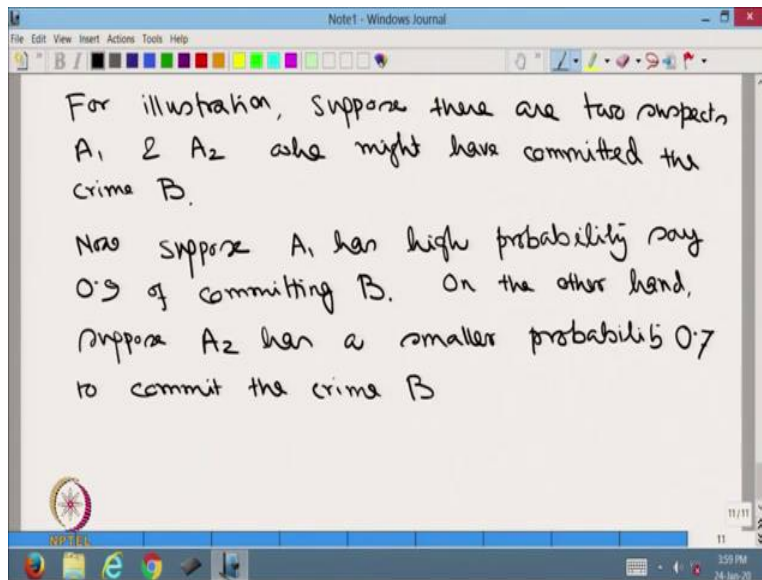 Note1 - Windows Journal
File Edit View Insert Actions Tools Help
B I
For illustration, suppose there are two suspects
A1 & A2 who might have committed the
crime B.
Now suppose A1 has high probability say
0.9 of committing B. On the other hand,
suppose A2 has a smaller probability 0.7
to commit the crime B
NPTEL
11/11
11
3:59 PM
24-Jan-20